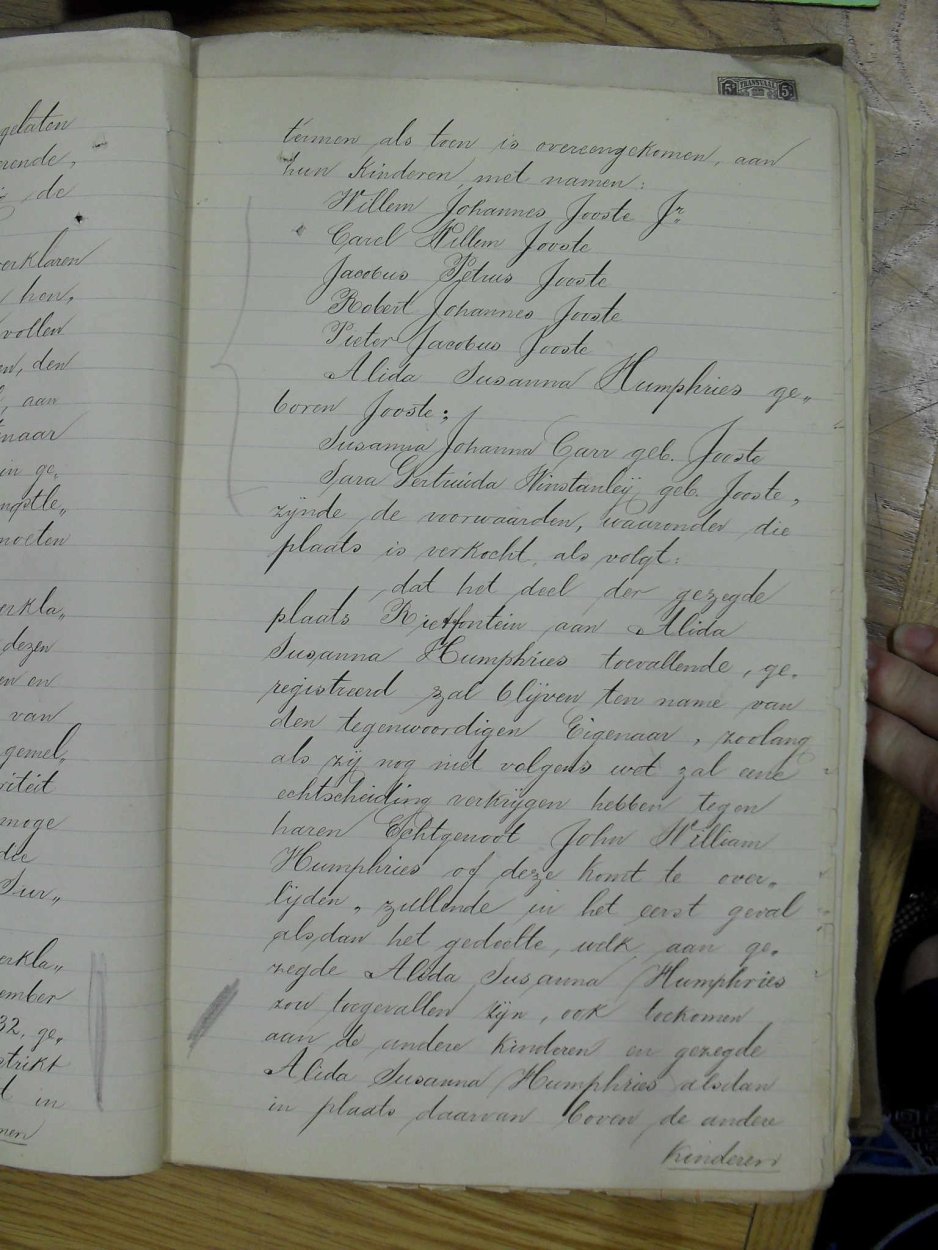 gelaten
de
verklaren
hen,
vollen
en, den
aan
naar
in ge„
moeten
erkla„
dezen
en en
van
gemel„
riteit
moge
die
Sur„
erkla„
ember
32, ge„
strikt
t in
5s TRANSVAAL 5s
termen als toen is overeengekomen, aan
hun Kinderen, met namen:
Willem Johannes Jooste Jr
Carel Willem Jooste
Jacobus Petrus Jooste
Robert Johannes Jooste
Pieter Jacobus Jooste
Alida Susanna Humphries ge„
boren Jooste;
Susanna Johanna Carr geb. Jooste
Sara Gertruida Winstanleij geb. Jooste,
zijnde de voorwaarden, waaronder die
plaats is verkocht, als volgt:
dat het deel der gezegde
plaats Rietfontein aan Alida
Susanna Humphries toevallende, ge„
registreerd zal blijven ten name van
den tegenwoordigen Eigenaar, zoolang
als zij nog niet volgens wet zal eene
echtscheiding verkrijgen hebben tegen
haren Echtgenoot John William
Humphries of deze komt te over„
lijden, zullende in het eerst geval
alsdan het gedeelte, welk aan ge„
zegde Alida Susanna Humphries
zou toegevallen zijn, ook toekomen
aan de andere kinderen en gezegde
Alida Susanna Humphries alsdan
in plaats daarvan boven de andere
kinderen